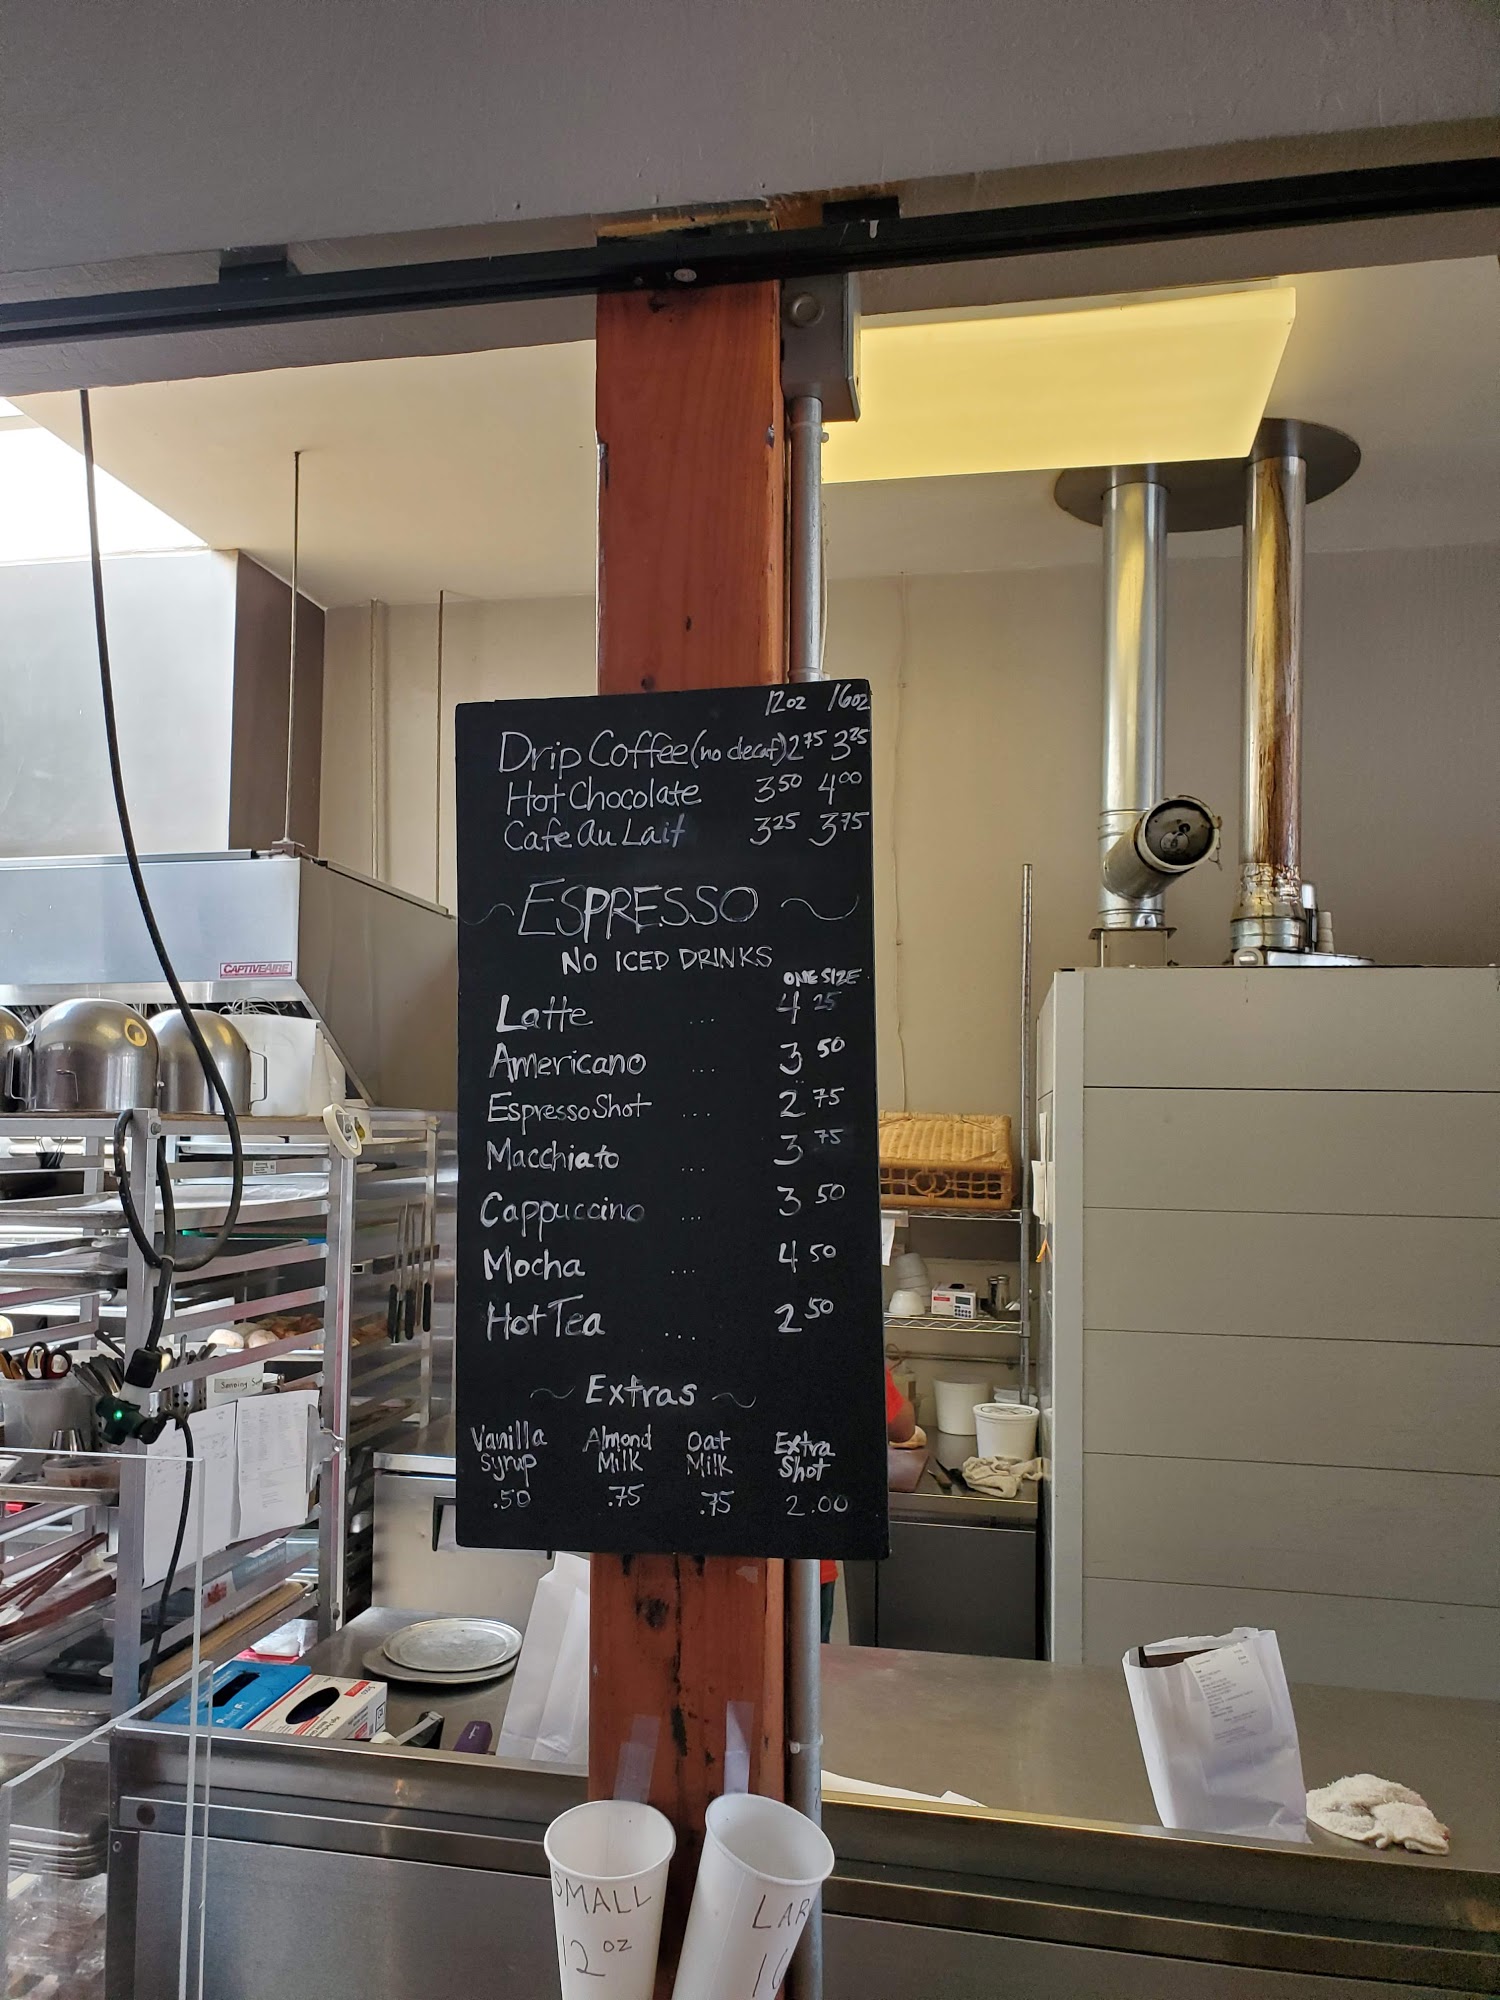 12oz 16oz
Drip Coffee (no decaf) 2 75 3 25
Hot Chocolate 3 50 4 00
Cafe Au Lait 3 25 3 75
ESPRESSO
NO ICED DRINKS
ONE SIZE
Latte ... 4 25
Americano ... 3 50
Espresso Shot ... 2 75
Macchiato ... 3 75
Cappuccino ... 3 50
Mocha ... 4 50
Hot Tea .... 2 50
~ Extras ~
Vanilla Syrup .50
Almond Milk .75
Oat Milk .75
Extra Shot 2.00
CAPTIVEAIRE
SMALL
12 oz
LAR
16